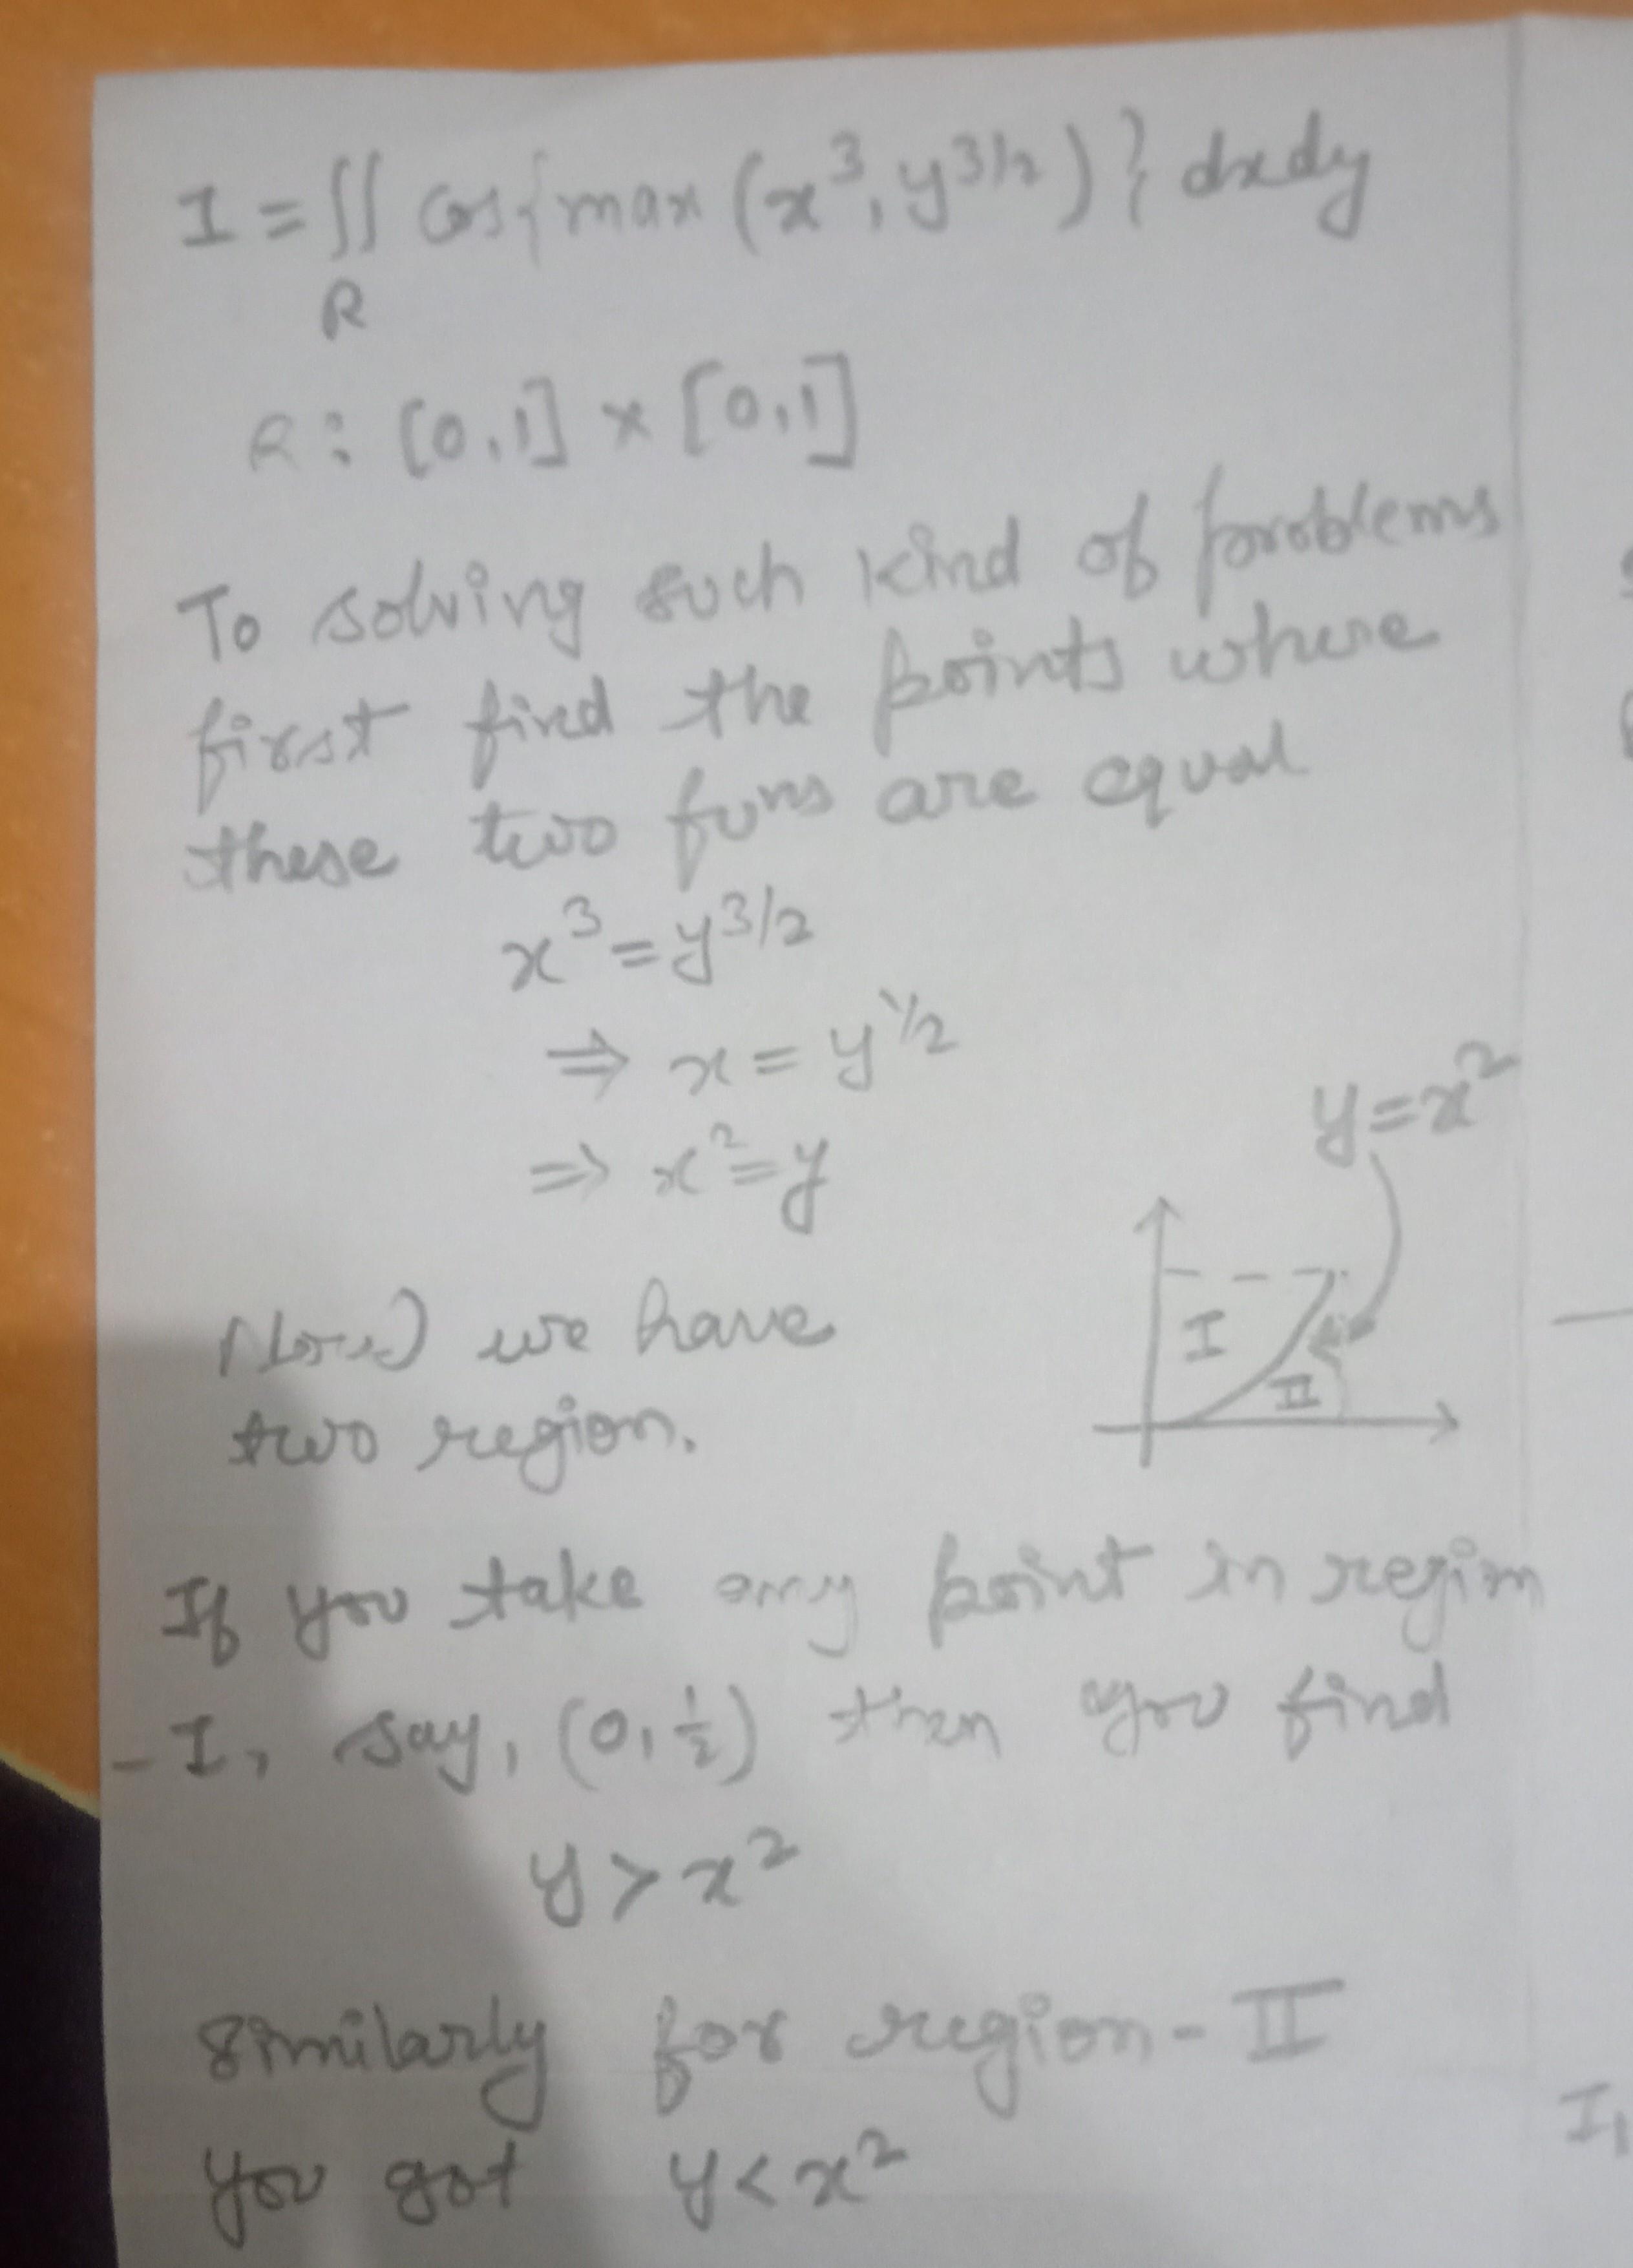 I = ∬ cos{max (x³, y^{3/2})} dxdy
R
R : [0,1] × [0,1]
To solving such kind of problems
first find the points where
these two funs are equal
x³ = y^{3/2}
⇒ x = y^{1/2}
⇒ x² = y
y = x²
I
II
Now we have
two region.
If you take any point in region
-I, say, (0, 1/2) then you find
y > x²
Similarly for region - II
you got y < x²
I₁